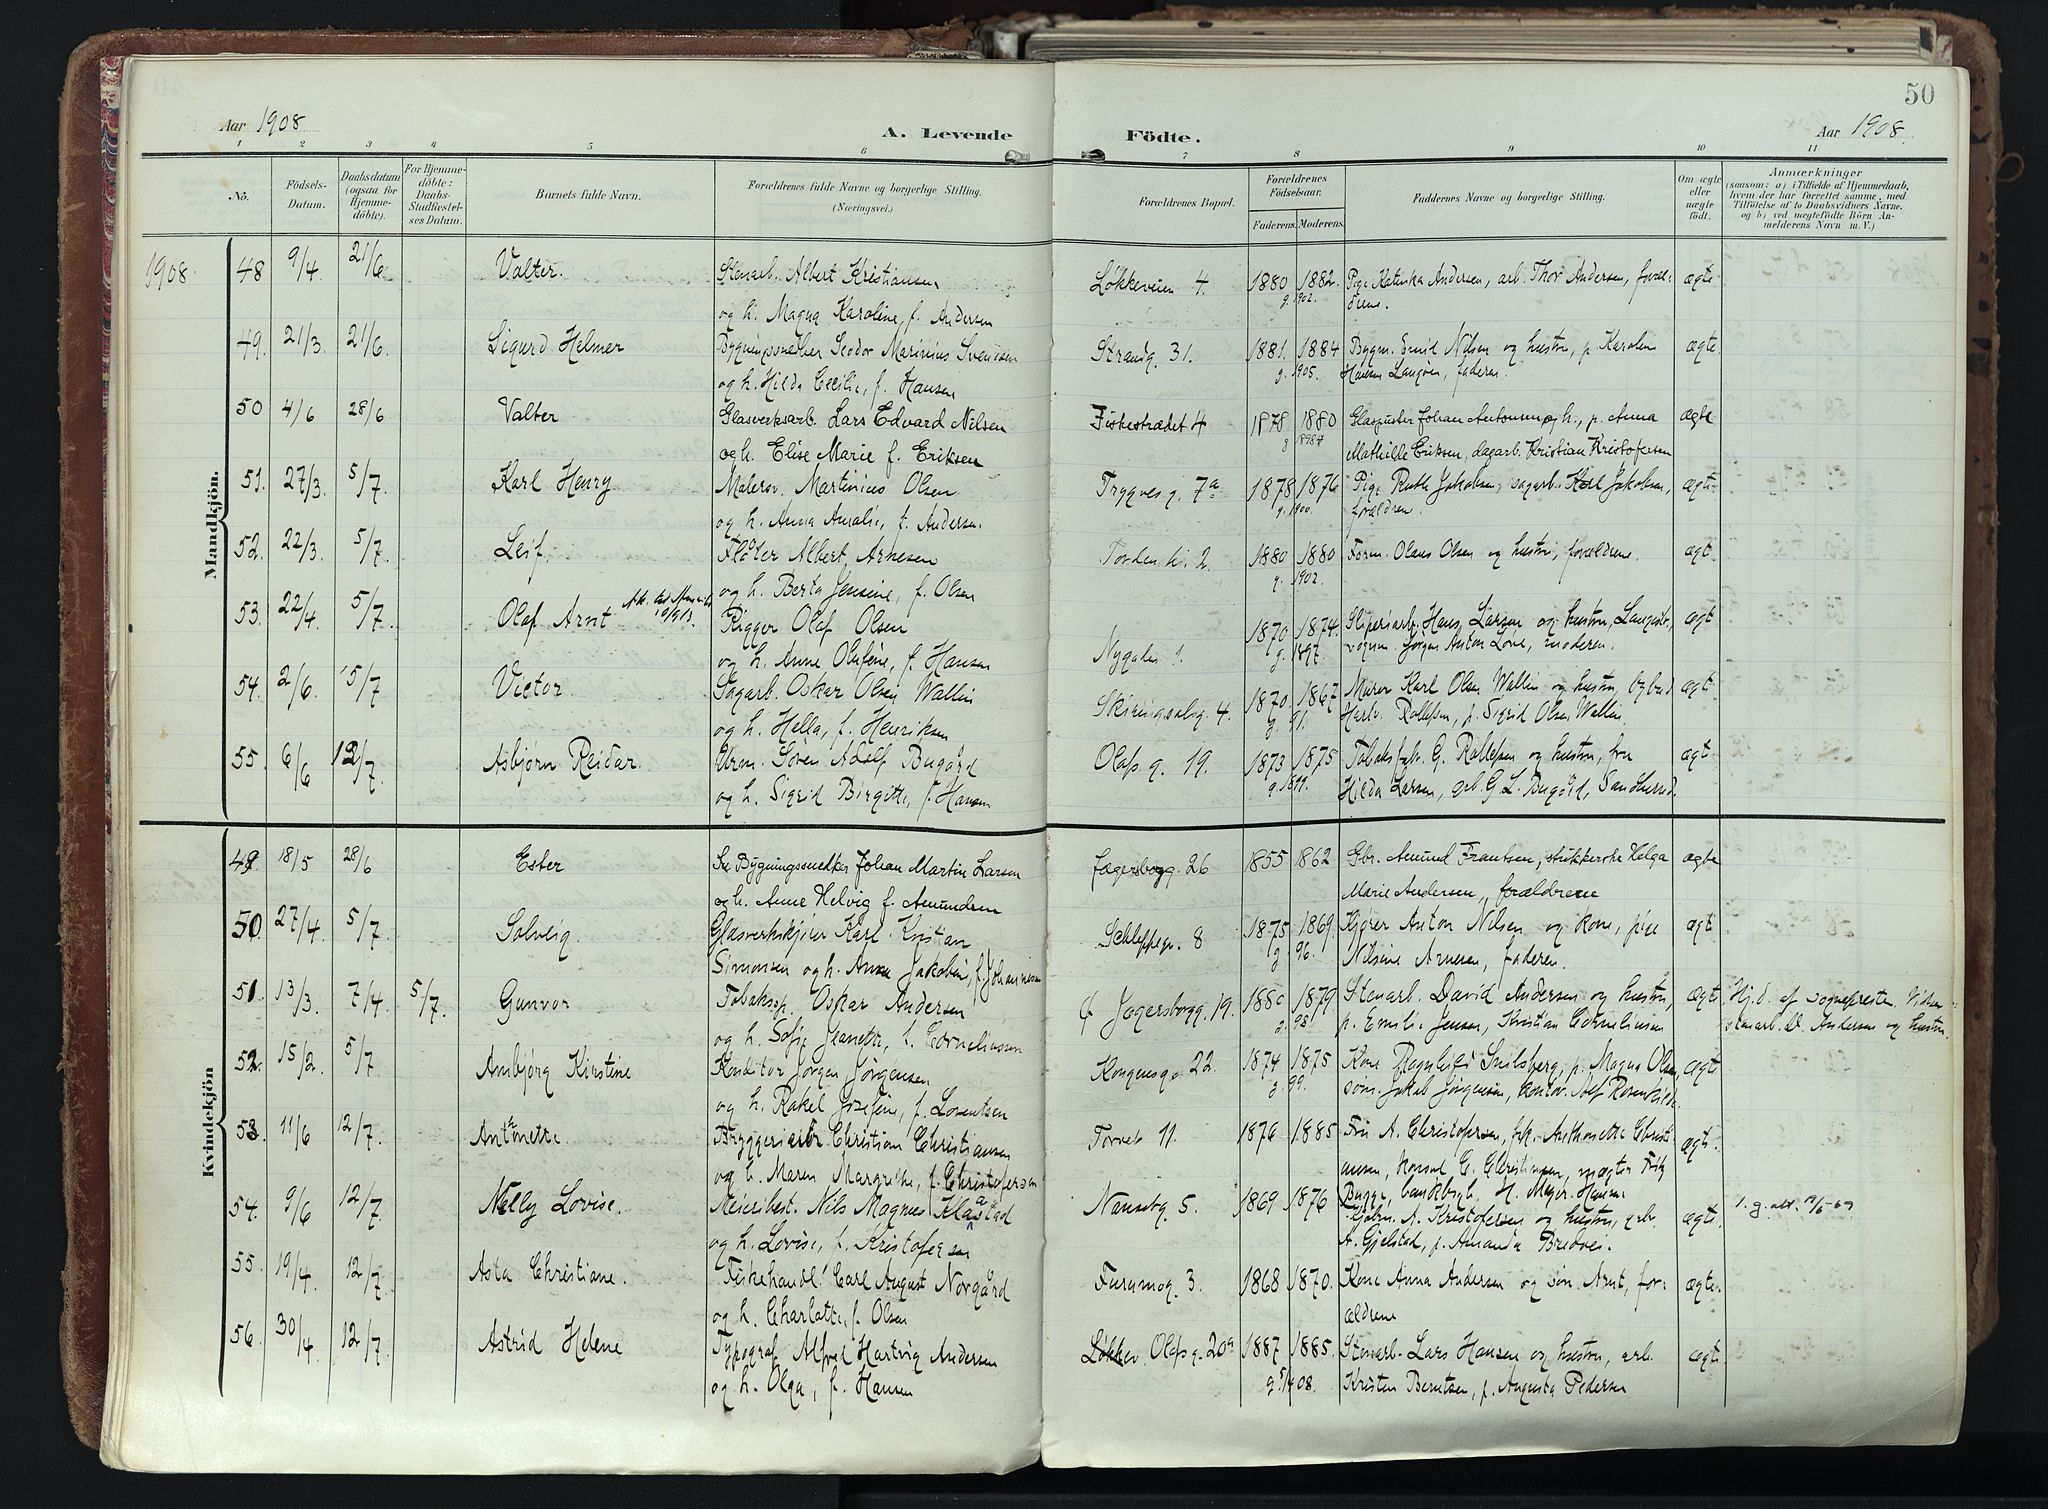 50
Aar 1908
A. Levende
Födte.
Aar 1908.
1 2 3 4 5 6 7 8 9 10 11
No.
Födsels-Datum.
Daabsdatum (ogsaa for Hjemmedöbte).
For Hjemmedöbte: Daabs-Stadfæstelses Datum.
Barnets fulde Navn.
Forældrenes fulde Navne og borgerlige Stilling.
(Næringsvei.)
Forældrenes Bopæl.
Forældrenes Födselsaar.
Faderens. Moderens.
Faddernes Navne og borgerlige Stilling.
Om ægte eller uægte födt.
Anmærkninger
(saasom: a) i Tilfælde af Hjemmedaab,
hvem der har forrettet samme, med
Tilföielse af to Daabsvidners Navne,
og b) ved uægtefödte Börn An-
melderens Navn m. V.)
Mandkjön.
1908 48 9/4 21/6 Valter. Stenarb. Albert Kristiansen Løkkeveien 4. 1880 1882. Pige Katinka Andersen, arb. Thor Andersen, foræl- ægte
og h. Magna Karoline, f. Andersen g. 1902. drene.
49. 21/3. 21/6. Sigurd Helmer Bygningssnedker Teodor Marinius Svensen Strandg. 31. 1881. 1884 Bygm. Emil Nilsen og hustru, p. Karoline ægte
og h. Hilda Cecilie, f. Hansen g. 1905. Hansen Langøen, faderen.
50 4/6 28/6 Valter Glasverksarb. Lars Edvard Nilsen Fiskestrædet 4 1878 1880 Glaspuster Johan Antonsen og h., p. Anna ægte
og h. Elise Marie f. Eriksen Mathilde Eriksen, dagarb. Kristian Kristofersen
51. 27/3. 5/7 Karl Henry Malersv. Martinius Olsen Trygves g. 7a 1878 1876 Pige Ruth Jakobsen, sagarb. Karl Jakobsen, ægte
og h. Anna Amalie, f. Andersen g. 1900. forældrene.
52. 22/3. 5/7. Leif. Fløter Albert Arnesen Torden 2. 1880 1880 Form. Olaus Olsen og hustru, forældrene. ægt
og h. Berta Jensine, f. Olsen g. 1902.
53. 22/4. 5/7. Olaf Arnt Rigger Olaf Olsen 1870 1874. Sliperiarb. Hans Larsen og hustru, Langestr., ægt
og h. Anne Olufine, f. Hansen Nygaten 1. g. 1897. vognm. Jörgen Anton Love, moderen.
54. 2/6. 5/7 Victor. Sagarb. Oskar Olsen Wallin Skiringsalsg. 4. 1870. 1867 Murer Karl Olsen Wallin og hustru, bybud ægt
og h. Hella, f. Henriksen g. 91. Rollefsen, p. Sigrid Olsen Wallin.
55. 6/6 12/7. Asbjørn Reidar. Urm. Søren Adolf Bugård Olafs g. 19. 1873 1875 Tobaksfabr. G. Rollefsen og hustru, fru ægt
og h. Sigrid Birgitte, f. Hansen g. 1899. Hilda Larsen, L. Bugård, Sandherred.
Kvindekjön
49 18/5 28/6 Ester Bygningssnedker Johan Martin Larsen Fægersborgg. 26 1855 1862 Gbr. Amund Frantsen, strikkerske Helga ægte
og h. Anne Helvig f. Amundsen Marie Andersen, forældrene
50. 27/4. 5/7. Solveig Glasverkskjører Karl Kristian Schleppegr. 8 1875 1869. Kjører Anton Nilsen og kone, pige ægt
Simonsen og h. Anna Jakobine, f. Johannesen g. 96. Nilsine Arnesen, faderen.
51 13/3. 7/4 5/7. Gunvor Tobakssp. Oskar Andersen Jegersborgg. 19. 1880 1879. Stenarb. David Andersen og hustru, ægte Hj.d. af sogneprest.
og h. Sofie Jeanette, f. Corneliussen g. 98. p. Emilie Jensen, Kristian Corneliussen stenarb. D. Andersen og hustru.
52. 15/2. 5/7 Ambjørg Kirstine Konditor Jørgen Jørgensen Kongensg. 22. 1874 1875 Kone Ragnhild p. Magna Olsen, ægt
og h. Rakel Josefine, f. Lorentsen g. 99. Jakob Jørgensen,
53. 11/6 12/7. Antonette Bryggerieier Christian Christiansen Torvet 11. 1876 1885 Fru A. Christofersen, frk. Anthonette Christi- ægt.
og h. Maren Margrethe, f. Christofersen ansen, konsul C. Christiansen,
54. 9/6 12/7. Nelly Lovise. Meieribest. Nils Magnus Klastad Nansetg. 5. 1869 1876 Bugge, H. Meyer Hansen ægte 1. g. att. 19/6-69
og h. Lovise, f. Kristofersen A. Kristofersen og hustru, arb. A. Gjelstad, p. Amanda Bredvei.
55. 19/4. 12/7. Asta Christiane. Fiskehandl. Carl August Norgård Furumog. 3. 1868 1870. Kone Anna Andersen og søn Arnt, for- ægte
og h. Charlotte, f. Olsen ældrene
56. 30/4 12/7. Astrid Helene Typograf Alfred Hartvig Andersen Løkkev. Olafs g. 20a 1887 1885. Stenarb. Lars Hansen og hustru, arb. ægt
og h. Olga, f. Hansen g. 5/4 08. Kristen Berntsen, p. Augusta Pedersen